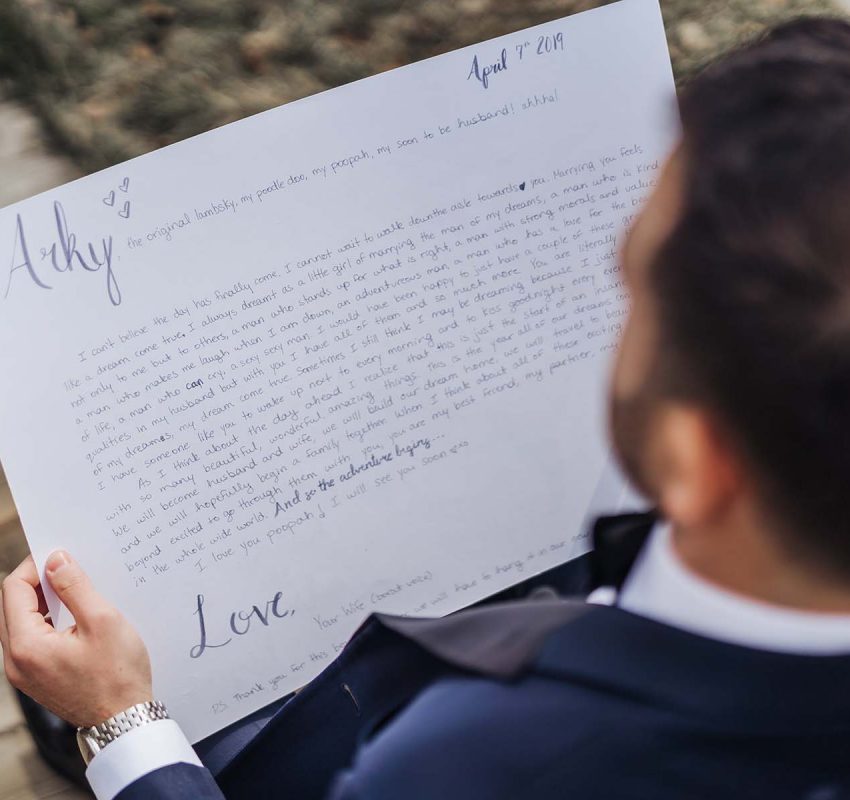 April 7th 2019
Arky, the original lambsky, my poodle doo, my poopah, my soon to be husband! ahhha!
I can't believe the day has finally come. I cannot wait to walk down the aisle towards you. Marrying you feels
like a dream come true. I always dreamt as a little girl of marrying the man of my dreams, a man who is kind
not only to me but to others, a man who stands up for what is right, a man with strong morals and values
a man who makes me laugh when I am down, an adventureous man, a man who has a love for the
of life, a man who can cry, a sexy sexy man. I would have been happy to just have a couple of these
qualities in my husband but with you I have all of them and so much more. You are literally
of my dreames, my dream come true. Sometimes I still think I may be dreaming because I just
I have someone like you to wake up next to every morning and to kiss goodnight every
As I think about the day ahead I realize that this is just the start of an
with so many beautiful, wonderful amazing things. This is the year all of our dreams
We will become husband and wife, we will build our dream home, we will travel to
and we will hopefully begin a family together. When I think about all of these exciting
beyond excited to go through them with you, you are my best friend, my partner, my
in the whole wide world. And so the adventure begins...
I love you poopah! I will see you soon xo
Love,
Your Wife (borat voice)
P.S. Thank you for this we will have to hang it in our new